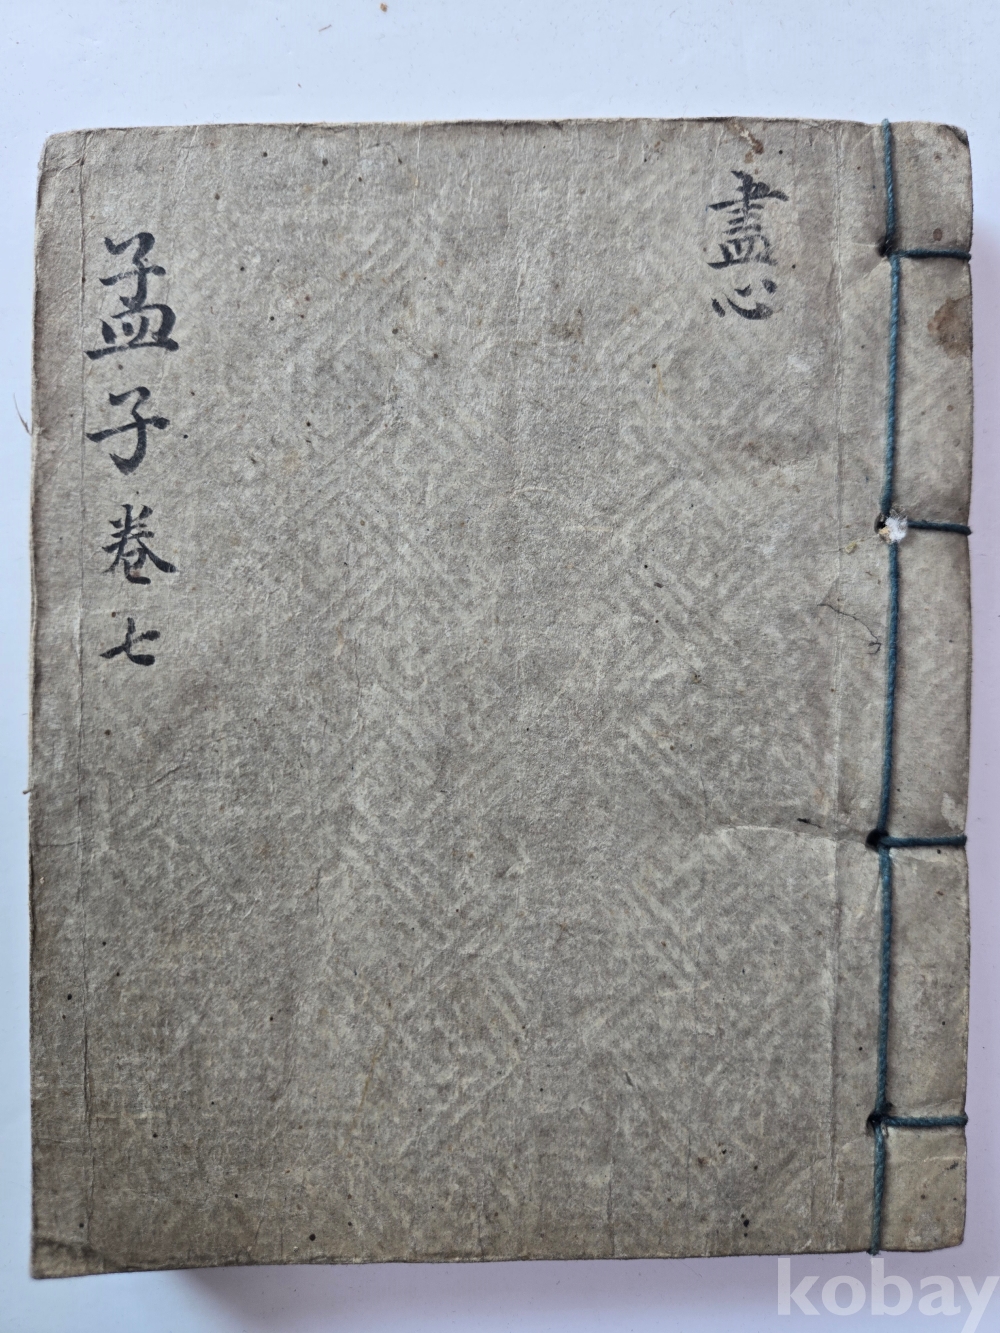 盡心
孟子卷七
kobay